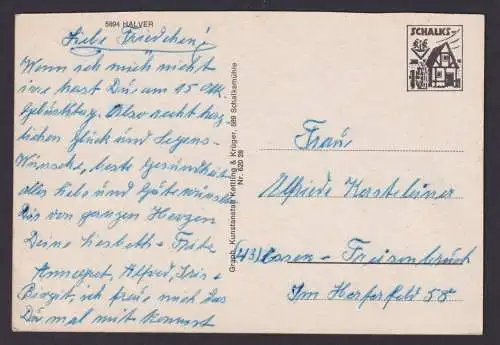 5894 HALVER
Liebe Friedchen!
Wenn ich mich nicht
irre hast Du am 15 Okt.
Geburtstag. Also recht herz-
lichen Glück und Segens-
Wünsche, beste Gesundheit
alles Liebe und Gute wünsche
Dir von ganzen Herzen
Deine Liesbeth - Fritz
Annegret, Alfred, Iris +
Birgit, ich freue mich das
Du mal mit kommst
Graph. Kunstanstalt Kettling & Krüger, 589 Schalksmühle
Nr. 620 28
SCHALKS-
Frau
Elfriede
(43) Essen - Freisenbruch
Im 58